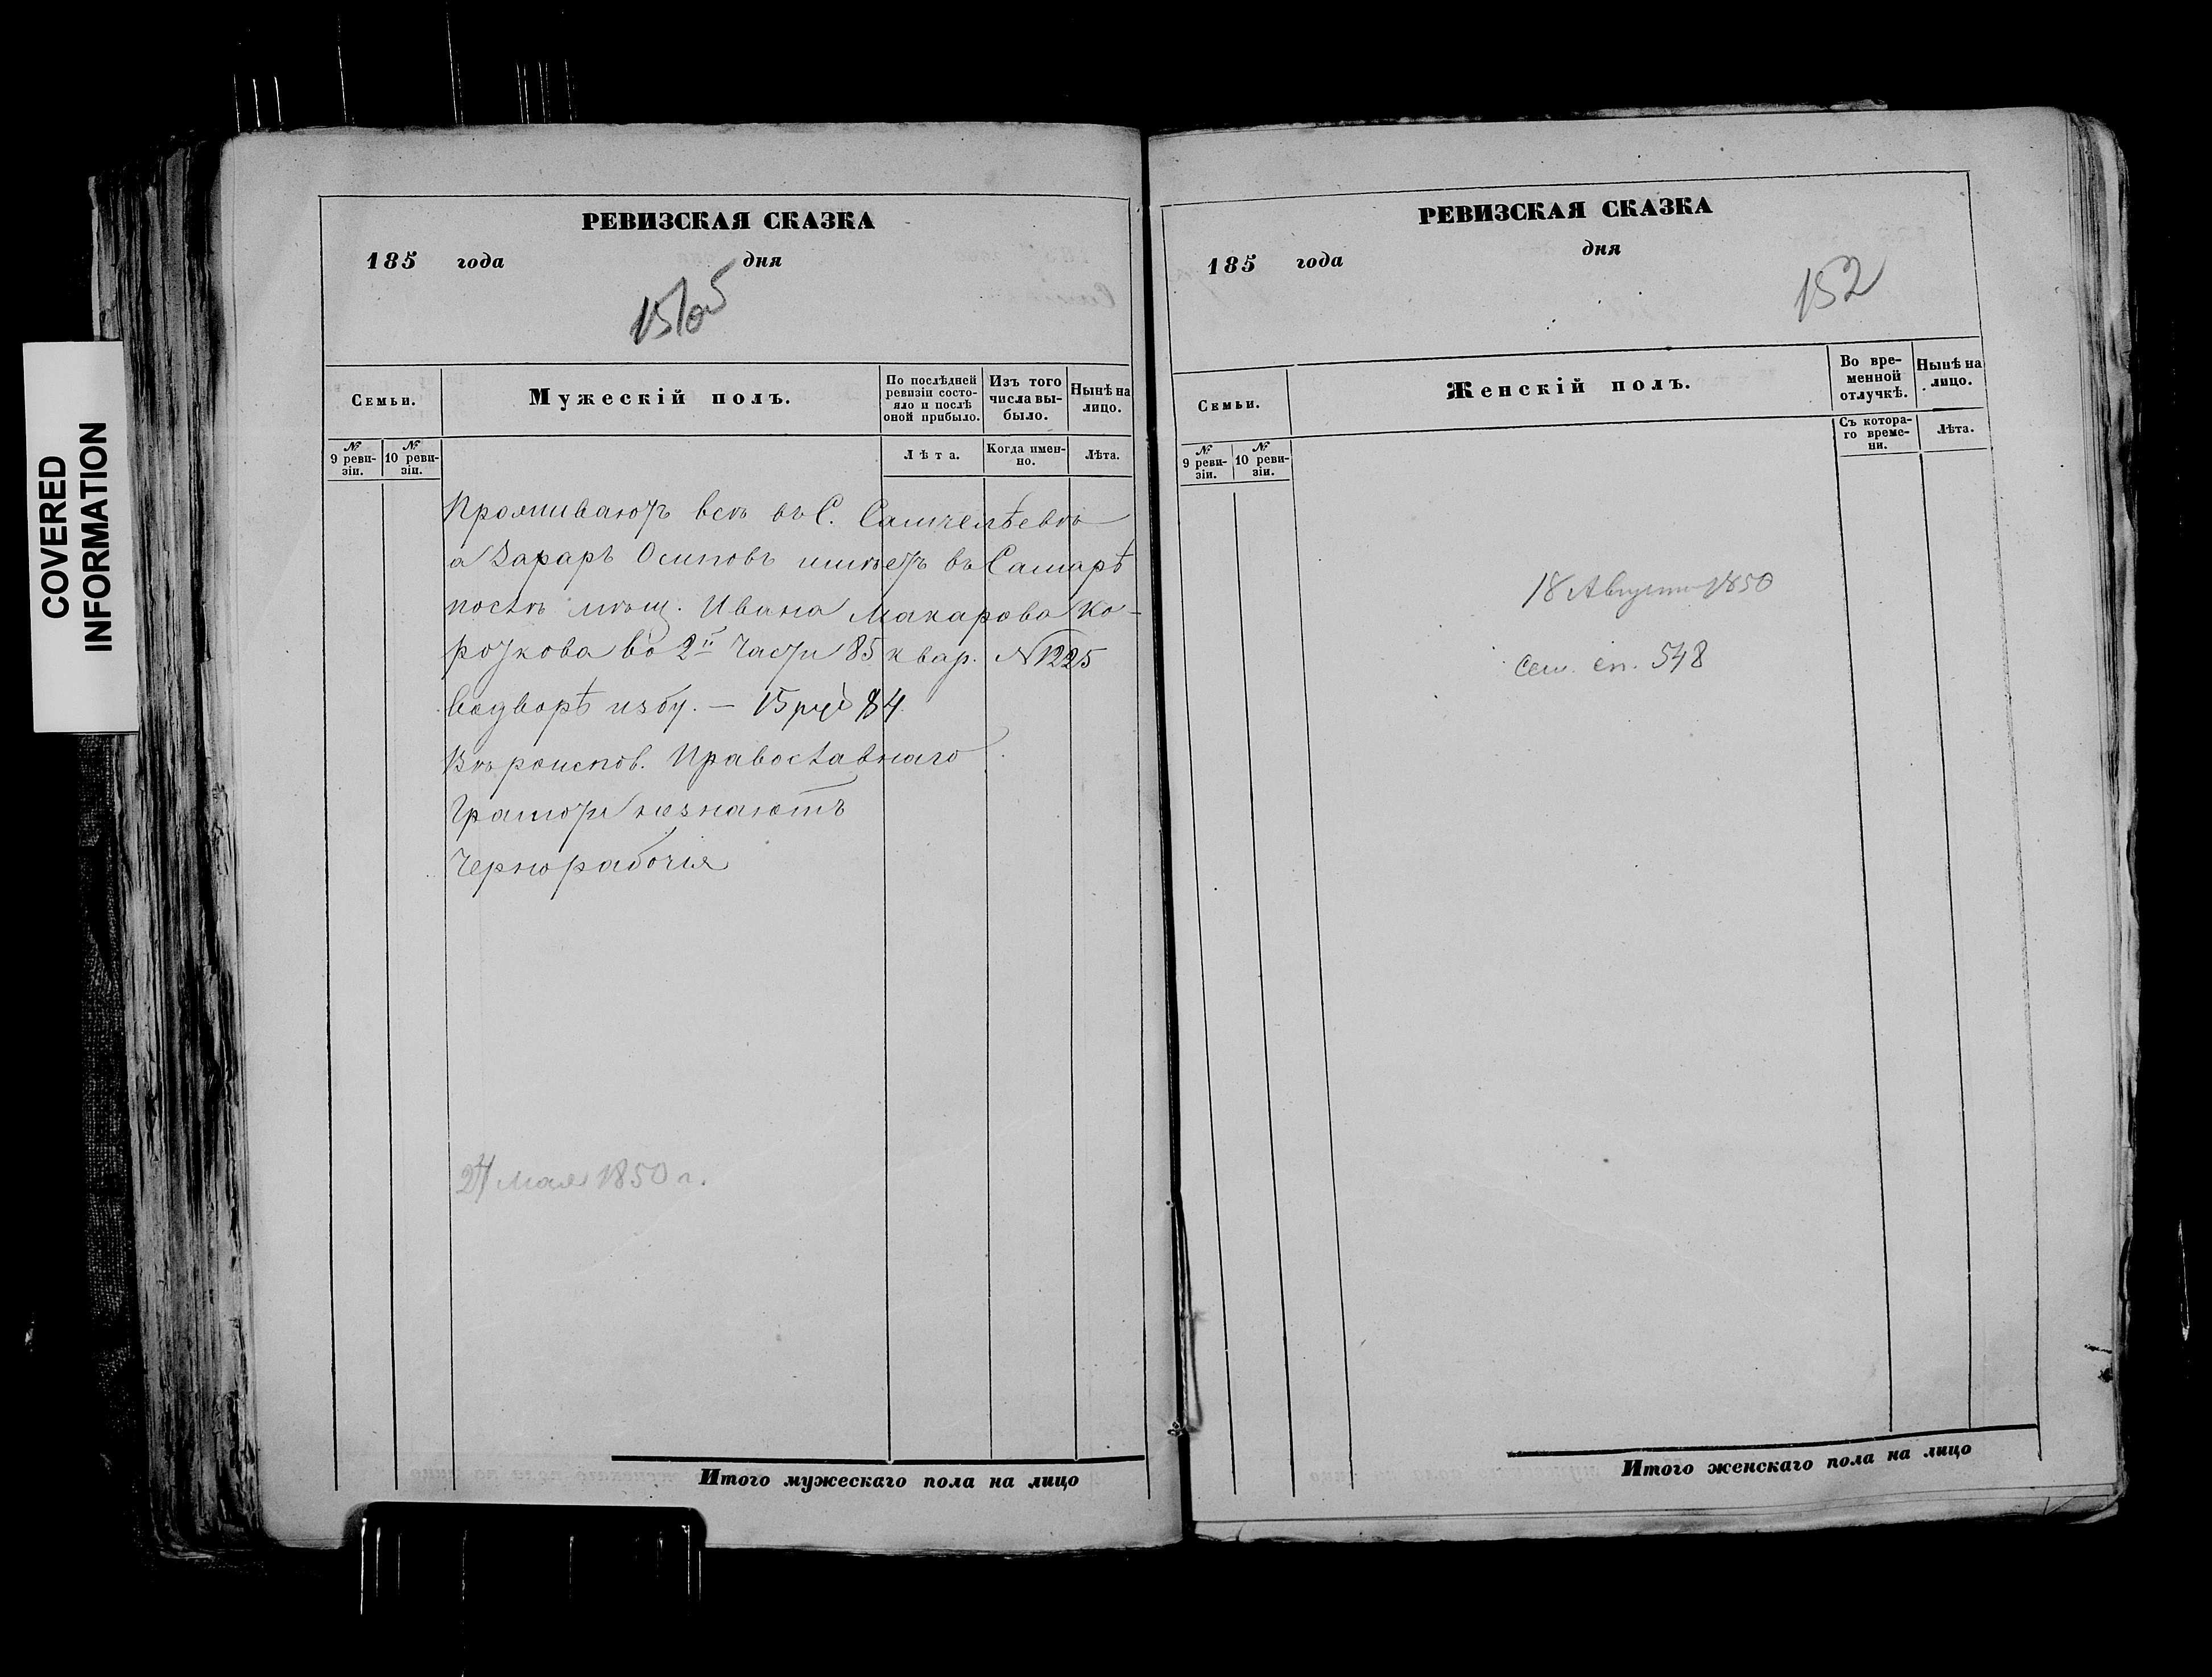 COVERED
INFORMATION
РЕВИЗСКАЯ СКАЗКА
185 года дня
Семьи.
Мужескій полъ.
По послѣдней ревизіи состояло и послѣ оной прибыло.
Изъ того числа выбыло.
Нынѣ на лицо.
№ 9 ревизіи.
№ 10 ревизіи.
Лѣта.
Когда именно.
Лѣта.
Проживаютъ всѣ въ С.
а Захаръ Осиповъ имѣетъ въ Самарѣ
послѣ мѣщ. Ивана Макарова Ко-
роткова во 2й части 85 квар. N 1225
водворѣ избу. — 15 руб 84
Вѣроиспов. Православнаго
Грамоти незнаютъ
Чернорабочія
24 Мая 1850 г.
Итого мужескаго пола на лицо
РЕВИЗСКАЯ СКАЗКА
185 года дня
152
Семьи.
Женскій полъ.
Во временной отлучкѣ.
Нынѣ на лицо.
№ 9 ревизіи.
№ 10 ревизіи.
Съ котораго времени.
Лѣта.
18 Августа 1850
Сем. сп. 548
Итого женскаго пола на лицо